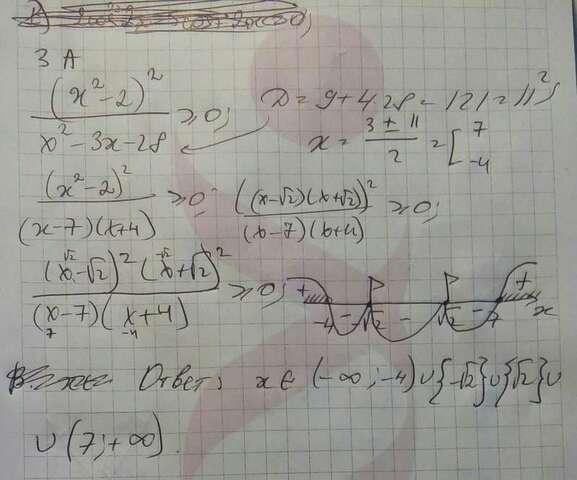 3 A
(x²-2)² / x²-3x-28 ≥0; D=9+4·28=121=11²;
x = 3±11 / 2 = [ 7 -4
(x²-2)² / (x-7)(x+4) ≥0; ((x-√2)(x+√2))² / (x-7)(x+4) ≥0;
√2 -√2
(x-√2)²(x+√2)² / (x-7)(x+4) ≥0; + - - - +
7 -4 -4 -√2 √2 7 x
Ответ: x∈(-∞;-4)∪{-√2}∪{√2}∪
∪(7;+∞).